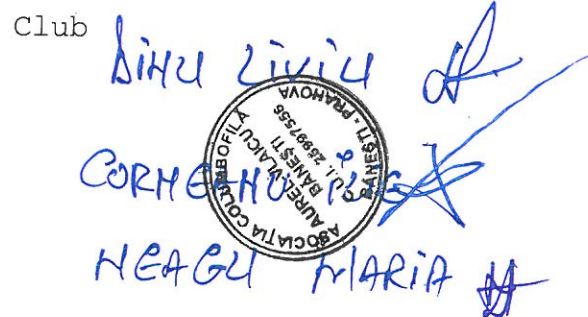 Club
DINU LIVIU
CORNEANU
NEAGU MARIA
ASOCIAȚIA COLUMBOFILĂ
AUREL VLAICU
BĂNEȘTI
C.U.I. 25997556
BĂNEȘTI - PRAHOVA